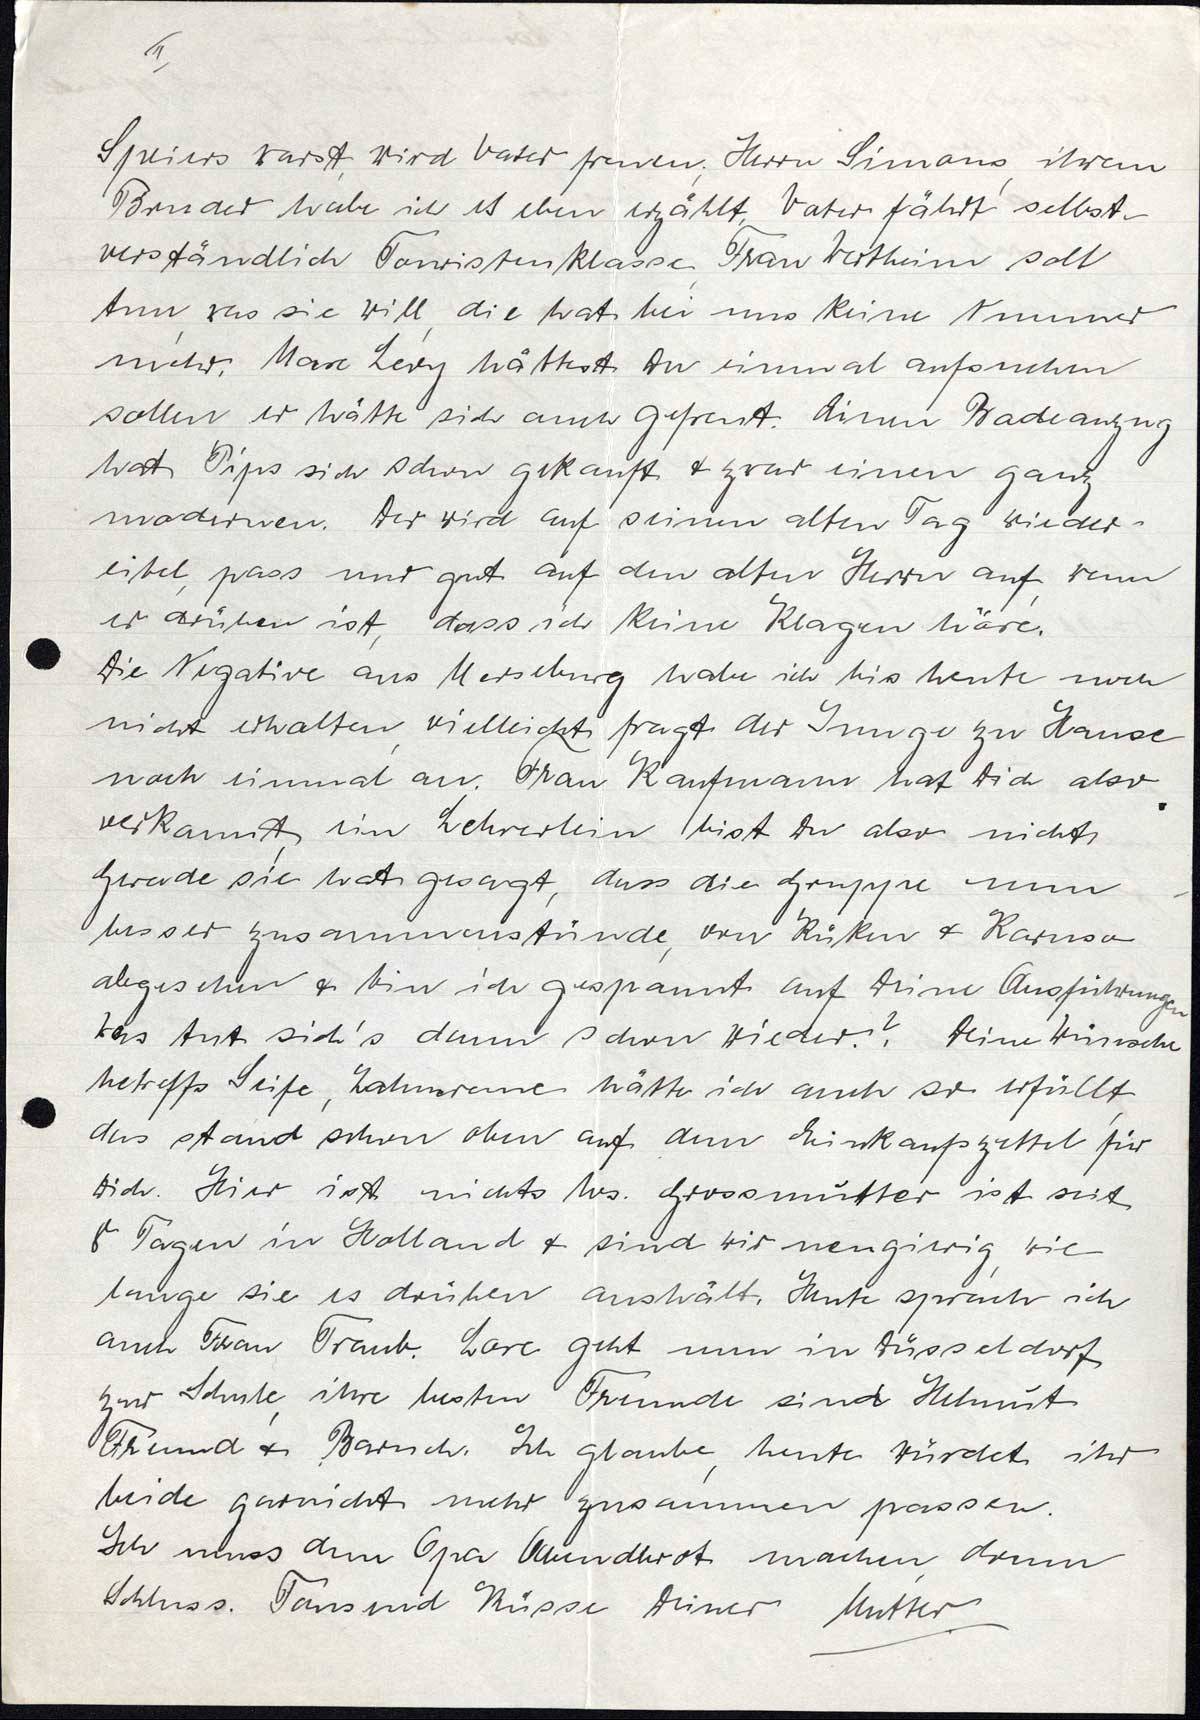 II,
Speiers warst, wird Vater freuen, Herrn Simons, ihrem
Bruder habe ich es eben erzählt, Vater fährt selbst-
verständlich Touristenklasse, Frau Wertheim soll
tun, was sie will, die hat bei uns keine Nummer
mehr. Marc Levy hättest Du einmal aufsuchen
sollen er hätte sich auch gefreut. Einen Badeanzug
hat Pips sich schon gekauft & zwar einen ganz
modernen. Der wird auf seinen alten Tag wieder-
eitel, pass nur gut auf den alten Herrn auf, wenn
er drüben ist, dass ich keine Klagen höre.
Die Negative aus Merseburg habe ich bis heute noch
nicht erhalten, vielleicht fragt der Junge zu Hause
noch einmal an. Frau Kaufmann hat Dich also
verkannt, ein Lehrerlein bist Du also nicht
Gerade sie hat gesagt, dass die Gruppe nun
besser zusammenstünde, von Küken & Karuso
abgesehen & bin ich gespannt auf Deine Ausführungen
Was tut sich's denn schon wieder?? Deine Wünsche
betreffs Seife, Zahncreme hätte ich auch so erfüllt,
das stand schon oben auf dem Einkaufszettel für
Dich. Hier ist nichts los. Grossmutter ist seit
8 Tagen in Holland & sind wir neugierig, wie
lange sie es drüben aushält. Heute sprach ich
auch Frau Traub. Lore geht nun in Düsseldorf
zur Schule, ihre besten Freunde sind Helmut
Freund & Baruch. Ich glaube, heute würdet ihr
beide garnicht mehr zusammen passen.
Ich muss dem Opa Abendbrot machen, drum
Schluss. Tausend Küsse Deiner Mutter